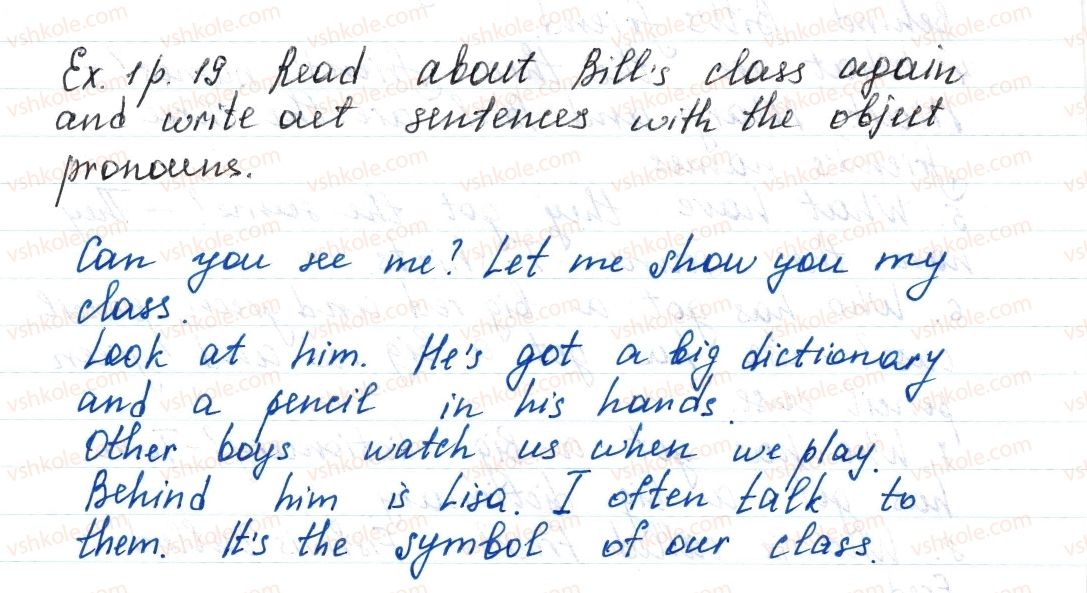 Ex. 1 p. 19 Read about Bill's class again
and write out sentences with the object
pronouns.
Can you see me? Let me show you my
class.
Look at him. He's got a big dictionary
and a pencil in his hands.
Other boys watch us when we play.
Behind him is Lisa. I often talk to
them. It's the symbol of our class.